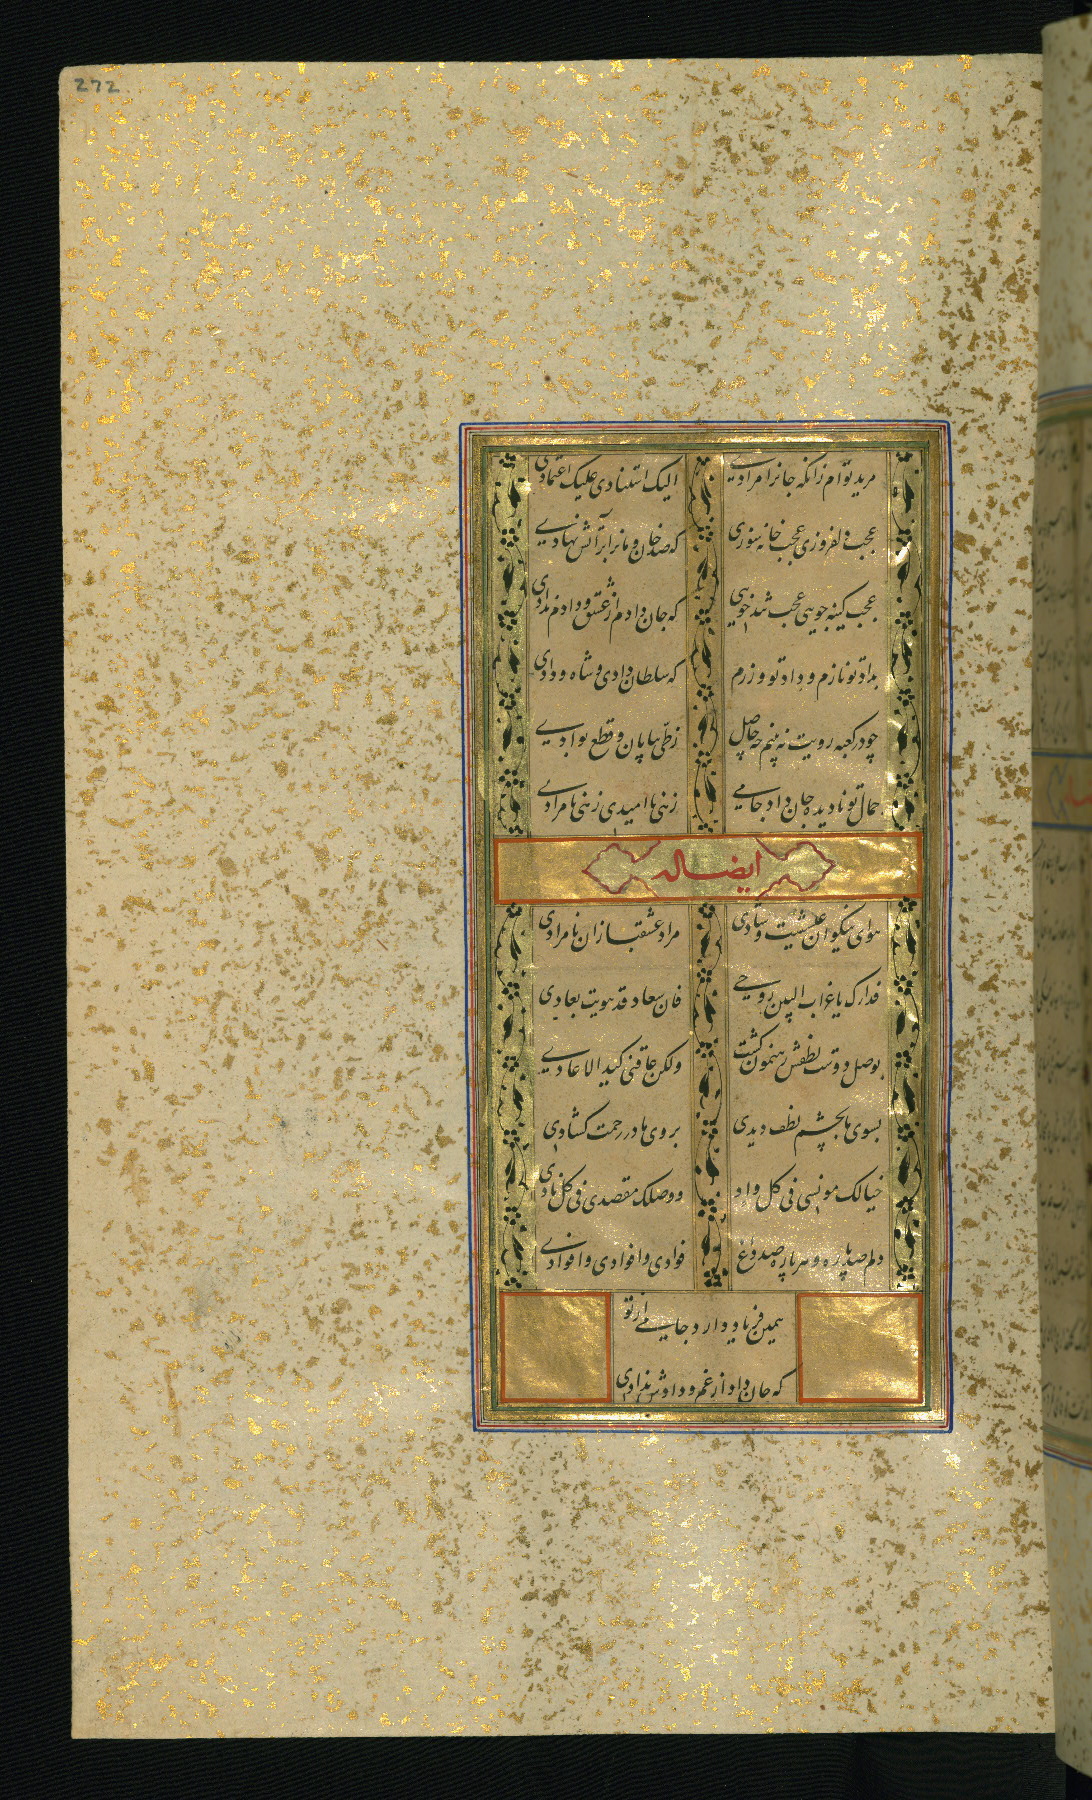 272
مرید توام زانکه جانرا مرادی الیک استنادی علیک اعتمادی
عجب دلفروزی عجب خانه سوزی که صد خان و مانرا بر آتش نهادی
عجب کینه جویی عجب تند خویی که جان دادم از عشق و دادم ندادی
بداد تو نازم و داد تو ورزم که سلطان دادی و شاه ودادی
چو در کعبه رویت نه بینم چه حاصل ز طی بیابان و قطع بوادی
جمال تو نادیده جان داد جامی زنی ناامیدی زنی نامرادی
ایضا له
هوای نیکوان عیشست و شادی مراد عشقبازان نامرادی
فدارک یا غراب البین روحی فان سعاد قد هویت بعادی
بوصل دوست لطفش رهنمون گشت ولکن عاقنی کید الاعادی
بسوی ما بچشم لطف دیدی بروی ما در رحمت گشادی
خیالک مونسی فی کل واد ووصلک مقصدی فی کل نادی
دلم صد پاره و هر پاره صد داغ فوادی وافوادی وافوادی
همین فریاد دارد جامی از تو
که جان داد از غم و دادش ندادی